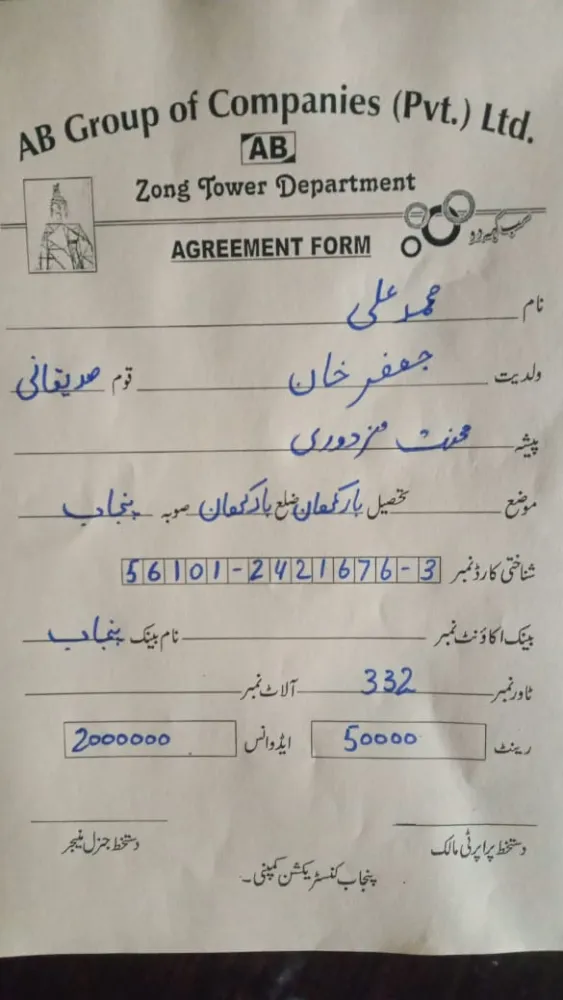 AB Group of Companies (Pvt.) Ltd.
AB
Zong Tower Department
AGREEMENT FORM
سب کہہ دو
نام محمد علی
ولدیت جعفر خان قوم صدیقانی
پیشہ محنت مزدوری
موضع تحصیل بارکھان ضلع بارکھان صوبہ پنجاب
شناختی کارڈ نمبر 56101-2421676-3
بینک اکاؤنٹ نمبر نام بینک پنجاب
ٹاور نمبر 332 آلاٹ نمبر
رینٹ 50000 ایڈوانس 2000000
دستخط پراپرٹی مالک دستخط جنرل منیجر
پنجاب کنسٹریکشن کمپنی۔